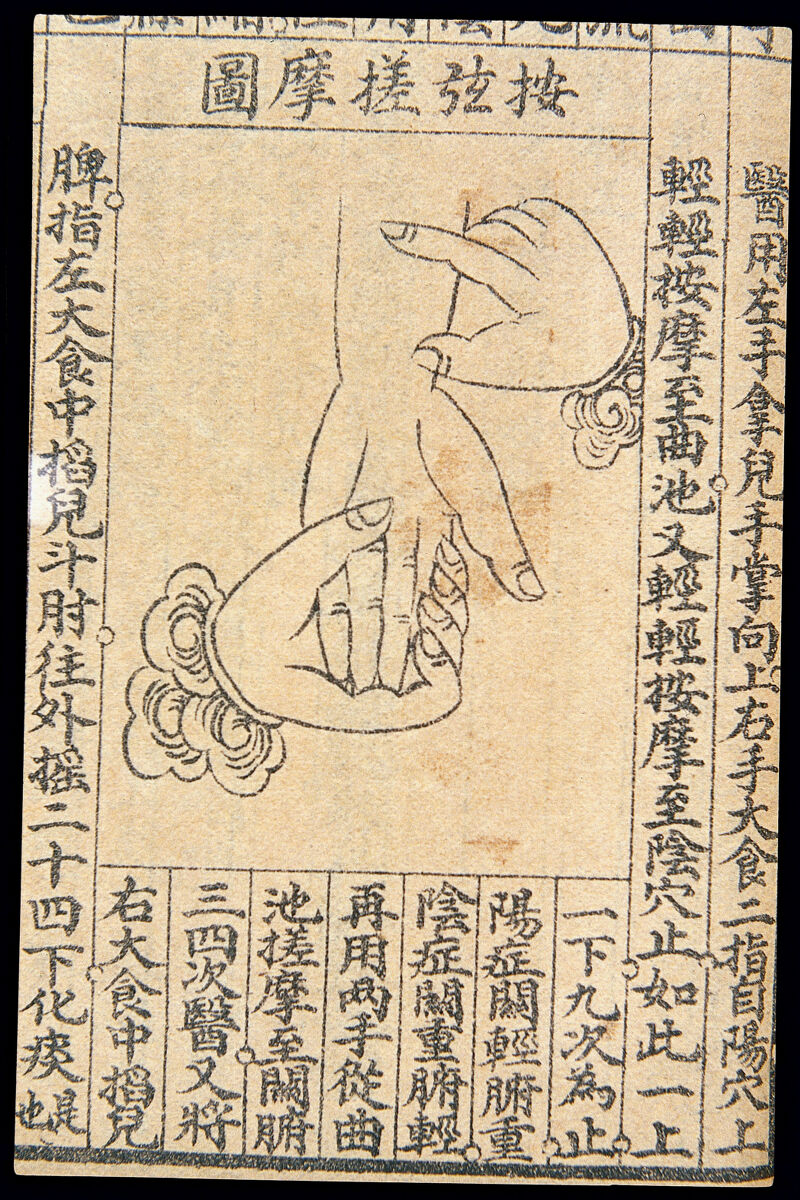 按弦搓摩圖
醫用左手拿兒手掌向上右手大食二指自陽穴上
輕輕按摩至曲池又輕輕按摩至陰穴止如此一上
一下九次為止
陽症關輕腑重
陰症關重腑輕
再用兩手從曲
池搓摩至關腑
三四次醫又將
右大食中掐兒
脾指左大食中掐兒斗肘往外搖二十四下化痰是也